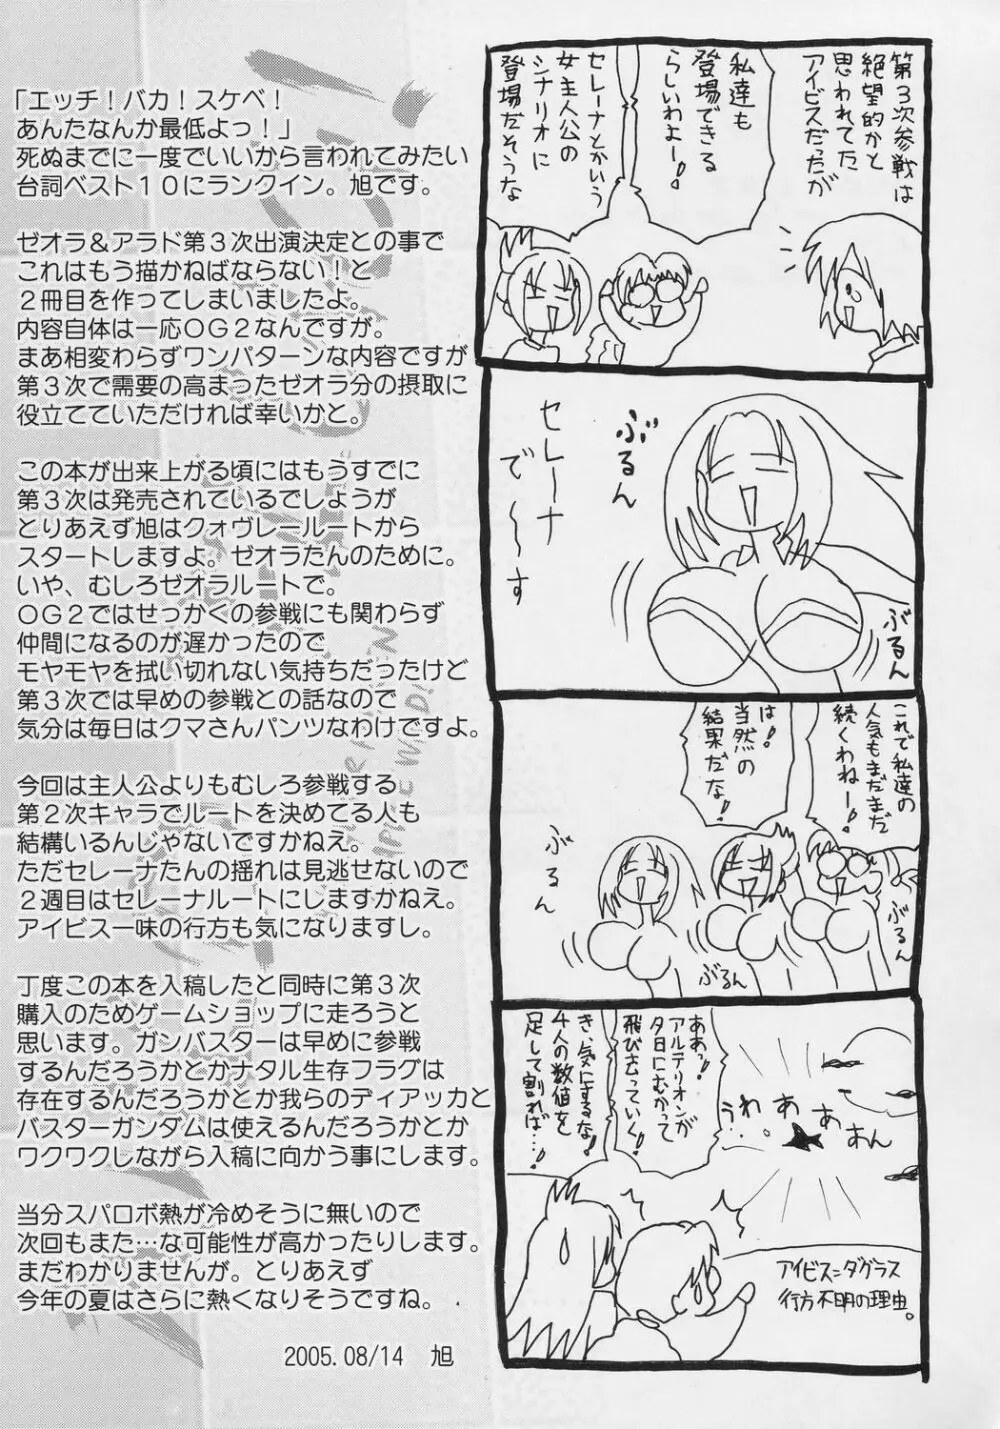 「エッチ！バカ！スケベ！
あんたなんか最低よっ！」
死ぬまでに一度でいいから言われてみたい
台詞ベスト１０にランクイン。旭です。
ゼオラ＆アラド第３次出演決定との事で
これはもう描かねばならない！と
２冊目を作ってしまいましたよ。
内容自体は一応ＯＧ２なんですが。
まあ相変わらずワンパターンな内容ですが
第３次で需要の高まったゼオラ分の摂取に
役立てていただければ幸いかと。
この本が出来上がる頃にはもうすでに
第３次は発売されているでしょうが
とりあえず旭はクォヴレールートから
スタートしますよ。ゼオラたんのために。
いや、むしろゼオラルートで。
ＯＧ２ではせっかくの参戦にも関わらず
仲間になるのが遅かったので
モヤモヤを拭い切れない気持ちだったけど
第３次では早めの参戦との話なので
気分は毎日はクマさんパンツなわけですよ。
今回は主人公よりもむしろ参戦する
第２次キャラでルートを決めてる人も
結構いるんじゃないですかねえ。
ただセレーナたんの揺れは見逃せないので
２週目はセレーナルートにしますかねえ。
アイビス一味の行方も気になりますし。
丁度この本を入稿したと同時に第３次
購入のためゲームショップに走ろうと
思います。ガンバスターは早めに参戦
するんだろうかとかナタル生存フラグは
存在するんだろうかとか我らのディアッカと
バスターガンダムは使えるんだろうかとか
ワクワクしながら入稿に向かう事にします。
当分スパロボ熱が冷めそうに無いので
次回もまた…な可能性が高かったりします。
まだわかりませんが。とりあえず
今年の夏はさらに熱くなりそうですね。
2005.08/14　旭
第３次参戦は
絶望的かと
思われてた
アイビスだったが
私達も
登場できる
らしいわよー！
セレーナとかいう
女主人公の
シナリオに
登場だそうな
セレーナ
で〜〜す
ぶるん
ぶるん
これで私達の
人気もまだまだ
続くわねー！
は！
当然の
結果だな！
ぶるん
ぶるん
ぶるん
うわぁあああん
ああっ！
アルテリオンが
夕日にむかって
飛びさっていく！
き、気にするな！
４人の数値を
足して割れば…！
アイビス＝ダグラス
行方不明の理由。